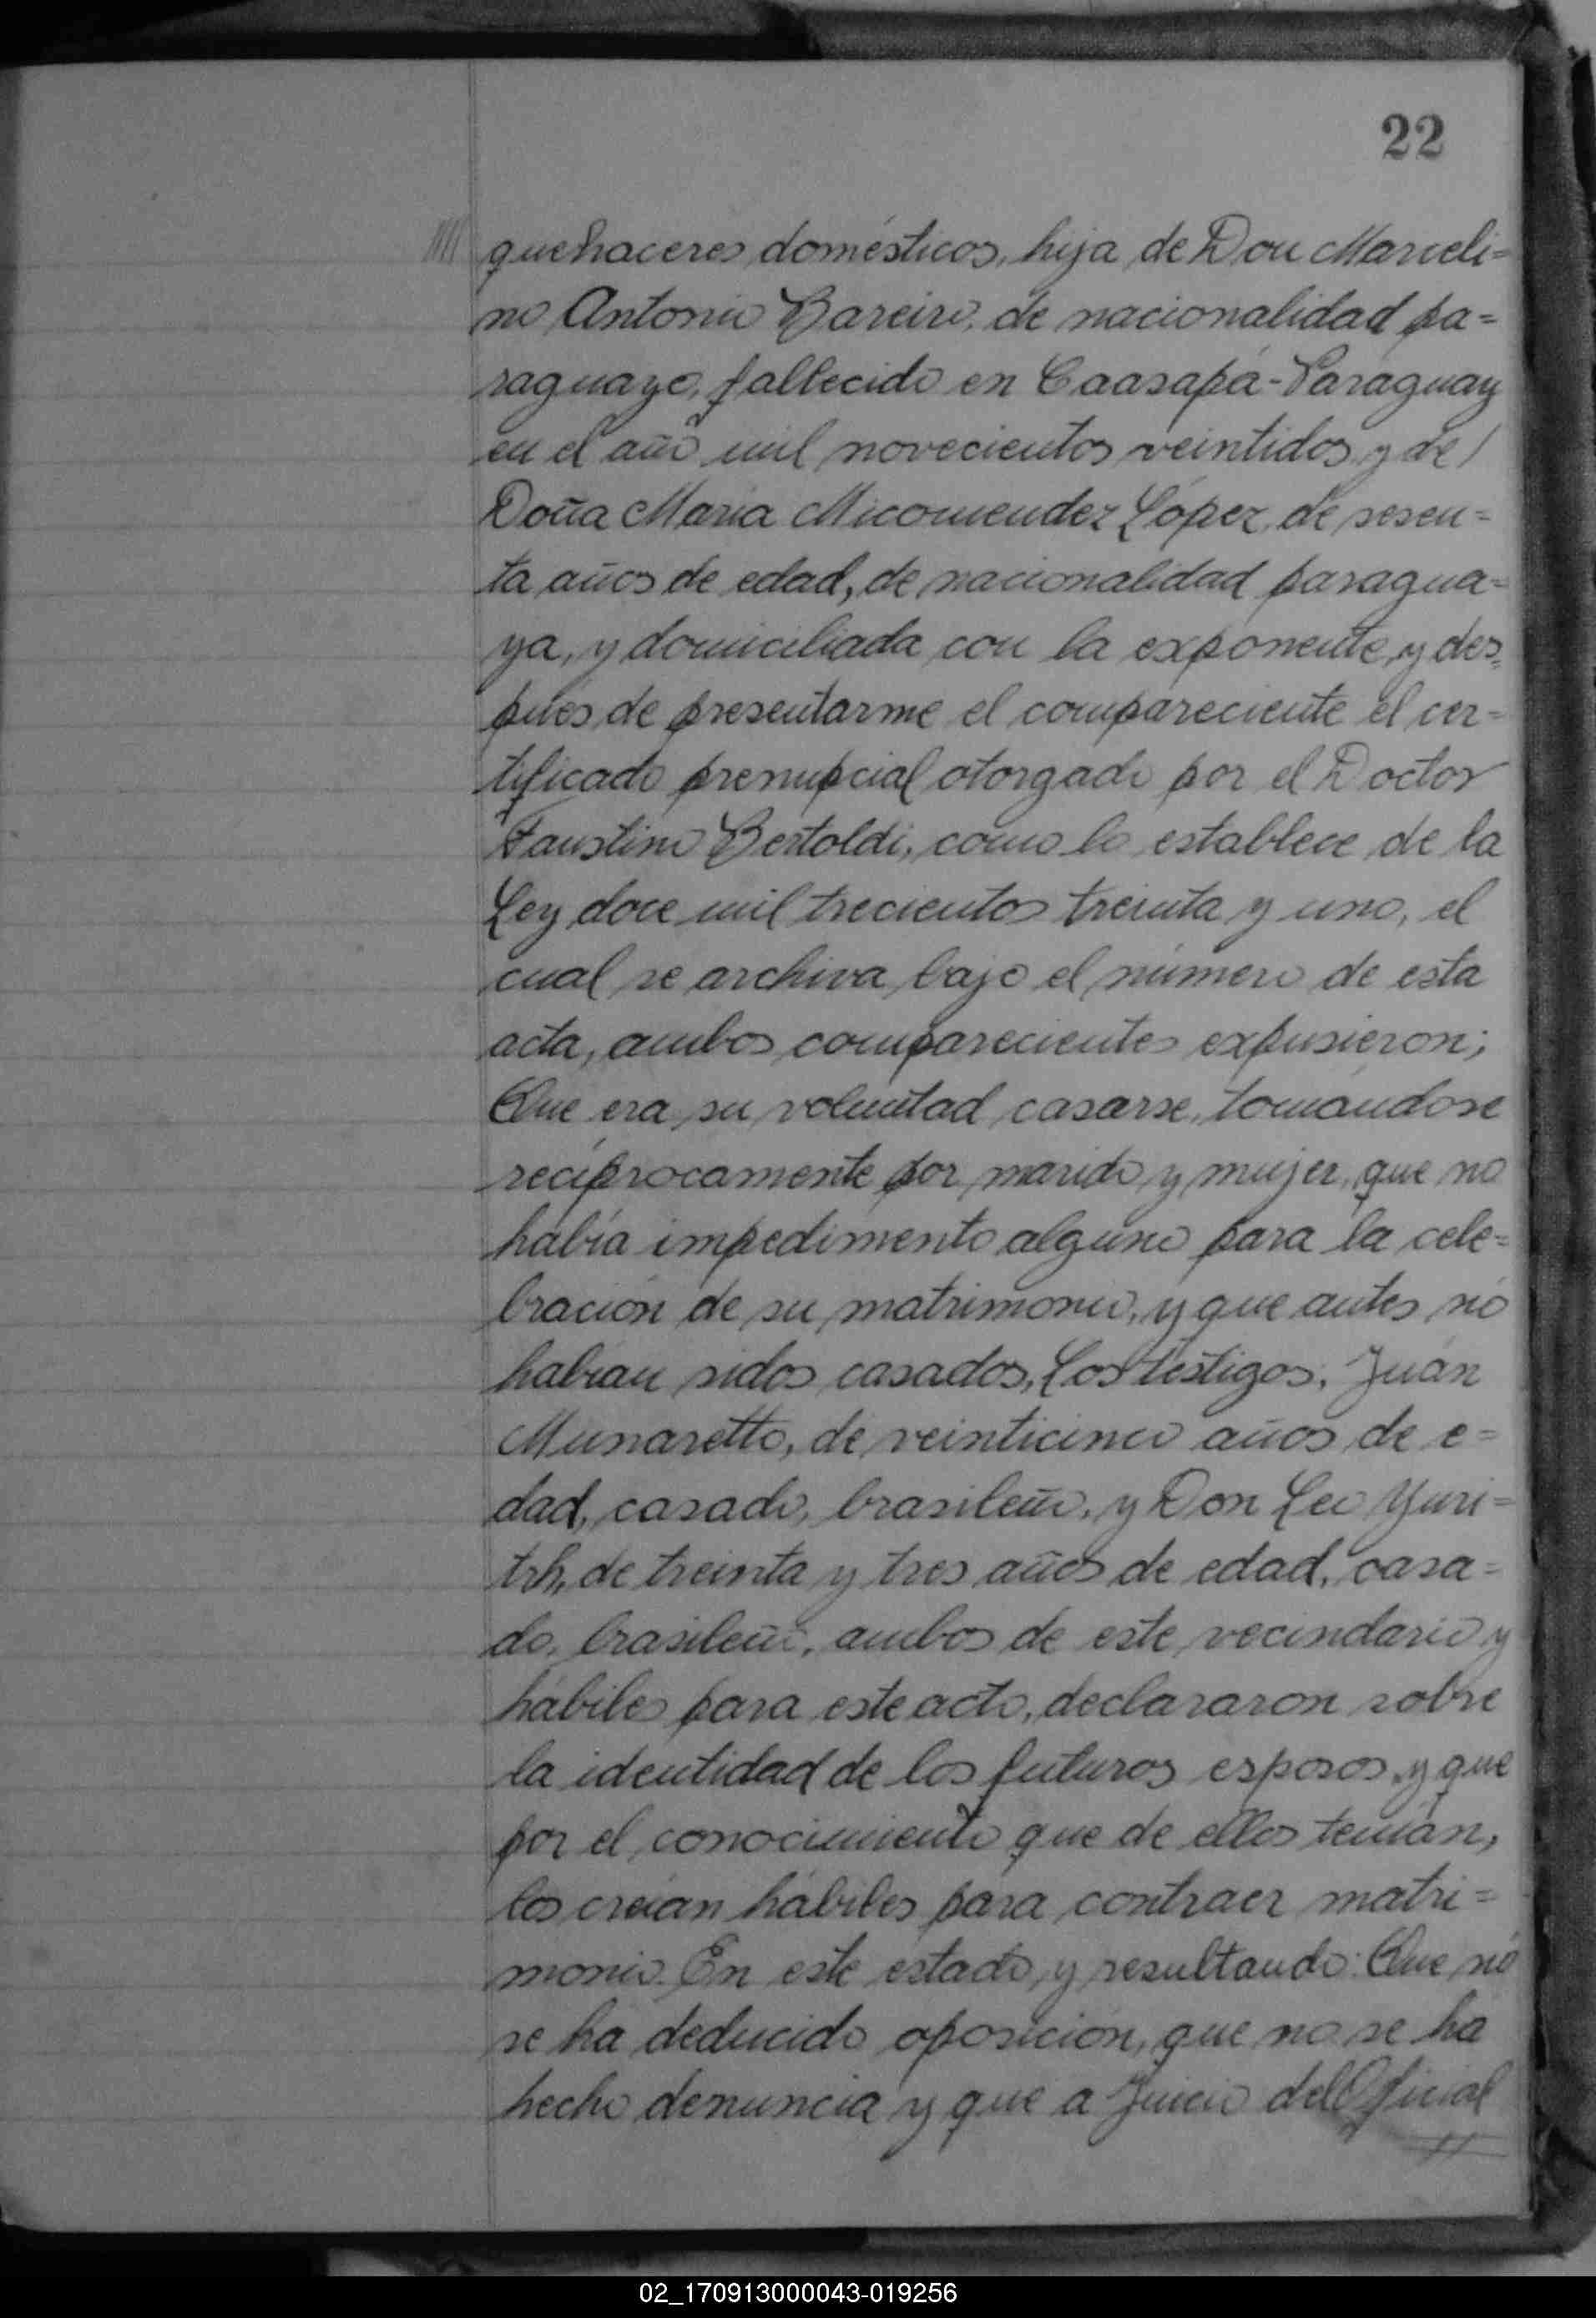 22
//// quehaceres domésticos, hija de Don Marceli=
no Antonio Bareiro, de nacionalidad pa=
raguayo, fallecido en Caasapá-Paraguay
en el año mil novecientos veintidos y de /
Doña María Micomendez López, de sesen=
ta años de edad, de nacionalidad paragua=
ya, y domiciliada con la exponente, y des=
pués de presentarme el compareciente el cer=
tificado prenupcial otorgado por el Doctor
Faustino Bertoldi, como lo establece de la
Ley doce mil trecientos treinta y uno, el
cual se archiva bajo el número de esta
acta, ambos comparecientes expusieron;
Que era su voluntad casarse, tomándose
recíprocamente por marido y mujer, que no
había impedimento alguno para la cele=
bración de su matrimonio, y que antes nó
habían sidos casados, Los testigos, Juán
Munaretto, de veinticinco años de e=
dad, casado, brasileño, y Don Leo Yuri=
trh, de treinta y tres años de edad, casa=
do, brasileño, ambos de este vecindario y
hábiles para este acto, declararon sobre
la identidad de los futuros esposos, y que
por el conocimiento que de ellos tenían,
los creían hábiles para contraer matri=
monio. En este estado, y resultando: Que nó
se ha deducido oposición, que no se ha
hecho denuncia y que a Juicio del Oficial
//
02_170913000043-019256